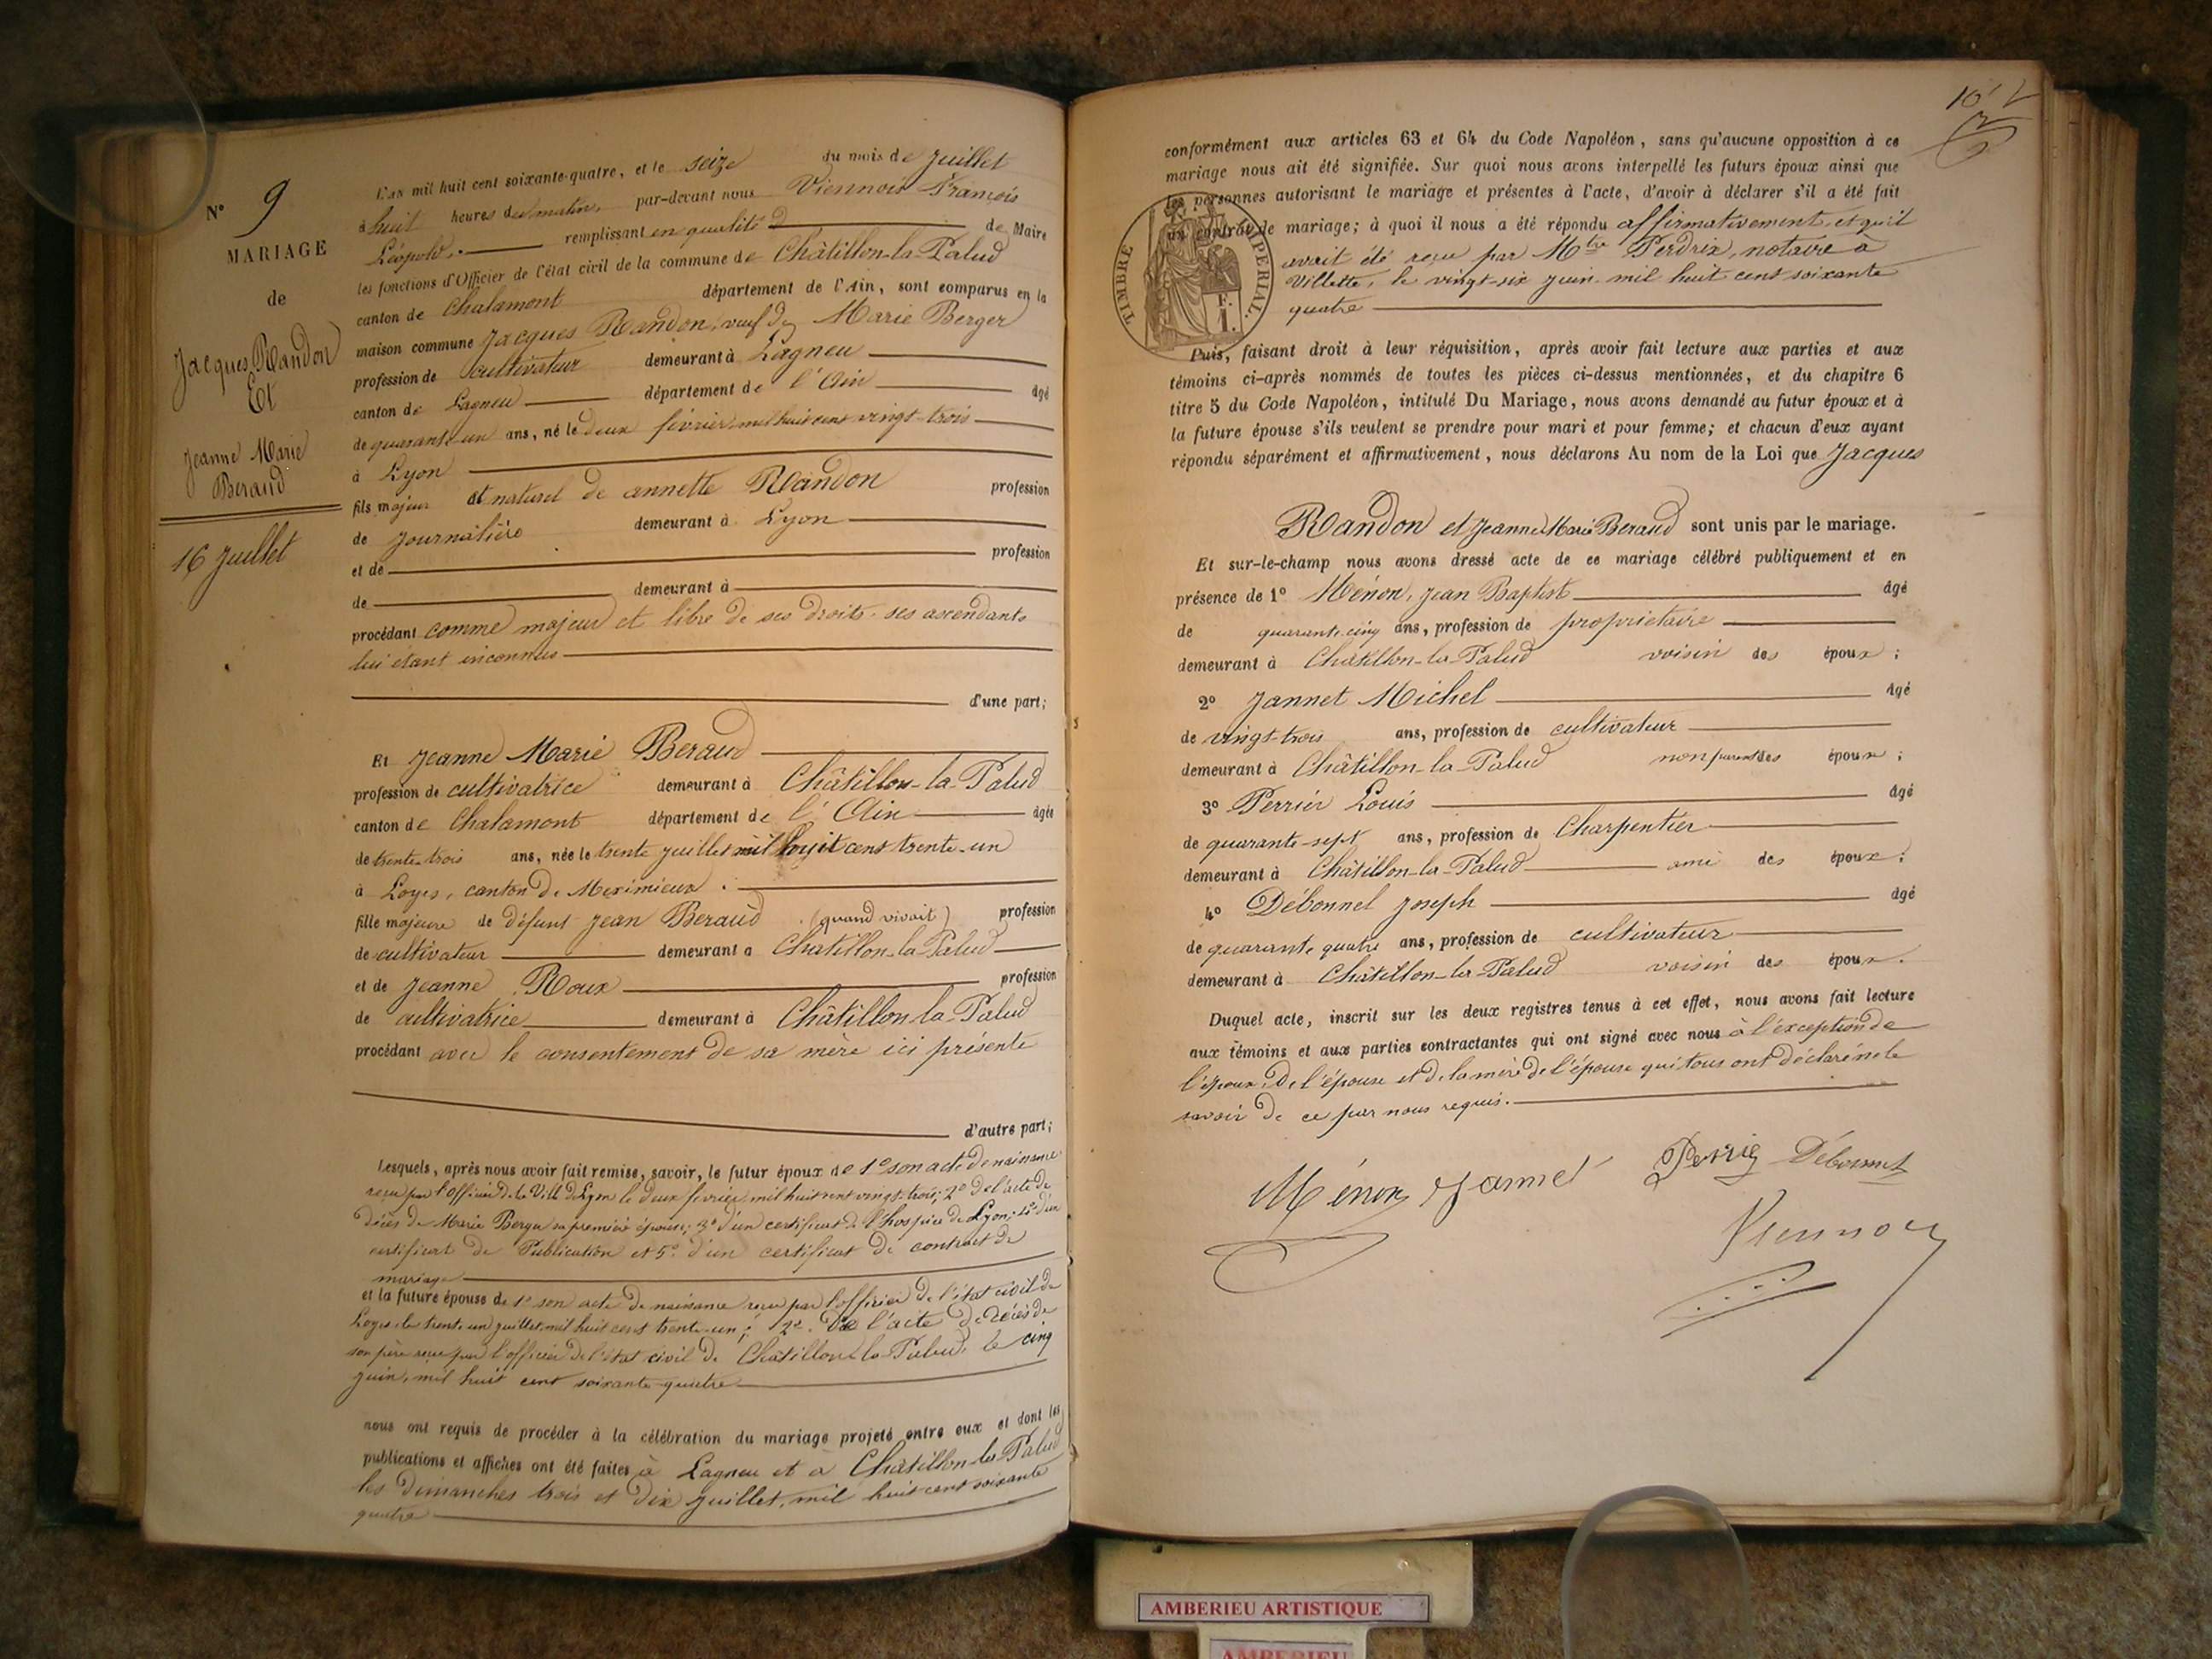 N° 9
MARIAGE
de
Jacques Randon
Et
Jeanne Marie
Beraud
16 Juillet
L'an mil huit cent soixante-quatre, et le seize du mois de Juillet
à huit heures du matin, par-devant nous Viennois François
Léopold. remplissant en qualité d de Maire
les fonctions d'Officier de l'état civil de la commune de Châtillon-la-Palud
canton de Chalamont département de l'Ain, sont comparus en la
maison commune Jacques Randon, veuf de Marie Berger
profession de cultivateur demeurant à Lagneu
canton de Lagneu département de l'Ain âgé
de quarante-un ans, né le deux février mil huit cent vingt-trois
à Lyon
fils majeur et naturel de annette Randon profession
de Journalière demeurant à Lyon
et de profession
de demeurant à
procédant comme majeur et libre de ses droits, ses ascendants
lui étant inconnus
d'une part;
Et Jeanne Marie Beraud
profession de cultivatrice demeurant à Châtillon-la-Palud
canton de Chalamont département de l'Ain âgée
de trente-trois ans, née le trente juillet mil huit cent trente-un
à Loyes, canton de Meximieux.
fille majeure de défunt Jean Beraud (quand vivait) profession
de cultivateur demeurant à Châtillon-la-Palud
et de Jeanne Roux profession
de cultivatrice demeurant à Châtillon-la-Palud
procédant avec le consentement de sa mère ici présente
d'autre part;
Lesquels, après nous avoir fait remise, savoir, le futur époux de 1° son acte de naissance
reçu par l'officier de la Ville de Lyon le deux février, mil huit cent vingt-trois; 2° de l'acte de
décès de Marie Berger sa première épouse; 3° d'un certificat de l'hospice de Lyon; 4° d'un
certificat de Publication et 5° d'un certificat de contract de
mariage
et la future épouse de 1° son acte de naissance reçu par l'officier de l'état civil de
Loyes le trente un juillet mil huit cent trente-un; 2° De l'acte de décès de
son père reçu par l'officier de l'état civil de Châtillon-la-Palud, le cinq
juin, mil huit cent soixante-quatre
nous ont requis de procéder à la célébration du mariage projeté entre eux et dont les
publications et affiches ont été faites à Lagneu et à Châtillon-la-Palud
les dimanches trois et dix juillet, mil huit cent soixante
quatre
conformément aux articles 63 et 64 du Code Napoléon, sans qu'aucune opposition à ce
mariage nous ait été signifiée. Sur quoi nous avons interpellé les futurs époux ainsi que
les personnes autorisant le mariage et présentes à l'acte, d'avoir à déclarer s'il a été fait
un contrat de mariage; à quoi il nous a été répondu affirmativement, et qu'il
avait été reçu par Mtre Perdrix, notaire à
Villette, le vingt-six juin mil huit cent soixante
quatre
TIMBRE IMPERIAL.
F.
1.
Puis, faisant droit à leur réquisition, après avoir fait lecture aux parties et aux
témoins ci-après nommés de toutes les pièces ci-dessus mentionnées, et du chapitre 6
titre 5 du Code Napoléon, intitulé Du Mariage, nous avons demandé au futur époux et à
la future épouse s'ils veulent se prendre pour mari et pour femme; et chacun d'eux ayant
répondu séparément et affirmativement, nous déclarons Au nom de la Loi que Jacques
Randon et Jeanne Marie Beraud sont unis par le mariage.
Et sur-le-champ nous avons dressé acte de ce mariage célébré publiquement et en
présence de 1° Ménon, Jean Baptist âgé
de quarante-cinq ans, profession de propriétaire
demeurant à Châtillon-la-Palud voisin des époux;
2° Jannet Michel âgé
de vingt-trois ans, profession de cultivateur
demeurant à Châtillon-la-Palud non parent des époux;
3° Perrier Louis âgé
de quarante-sept ans, profession de Charpentier
demeurant à Châtillon-la-Palud ami des époux;
4° Débonnel Joseph âgé
de quarante quatre ans, profession de cultivateur
demeurant à Châtillon-la-Palud voisin des époux.
Duquel acte, inscrit sur les deux registres tenus à cet effet, nous avons fait lecture
aux témoins et aux parties contractantes qui ont signé avec nous à l'exception de
l'époux, de l'épouse et de la mère de l'épouse qui tous ont déclaré ne le
savoir de ce par nous requis.
Ménon Jannet Perrie Débonnel
Viennois
AMBERIEU ARTISTIQUE
AMBERIEU